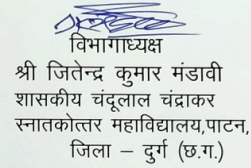 विभागाध्यक्ष
श्री जितेन्द्र कुमार मंडावी
शासकीय चंदूलाल चंद्राकर
स्नातकोत्तर महाविद्यालय,पाटन,
जिला – दुर्ग (छ.ग.)